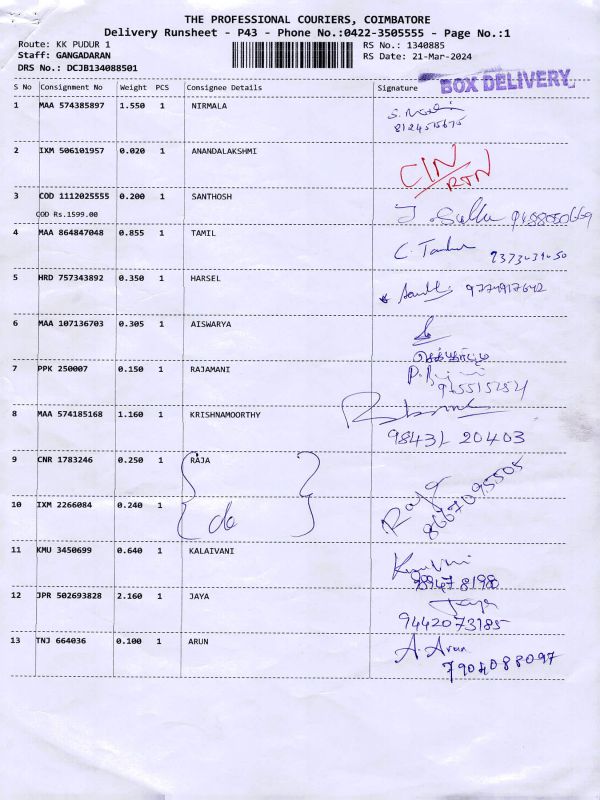 THE PROFESSIONAL COURIERS, COIMBATORE
Delivery Runsheet - P43 - Phone No.:0422-3505555 - Page No.:1
Route: KK PUDUR 1 RS No.: 1340885
Staff: GANGADARAN RS Date: 21-Mar-2024
DRS No.: DCJB134088501
BOX DELIVERY
S No Consignment No Weight PCS Consignee Details Signature
1 MAA 574385897 1.550 1 NIRMALA
2 IXM 506101957 0.020 1 ANANDALAKSHMI CIN/RTN
3 COD 1112025555 0.200 1 SANTHOSH
COD Rs.1599.00
4 MAA 864847048 0.855 1 TAMIL
5 HRD 757343892 0.350 1 HARSEL
6 MAA 107136703 0.305 1 AISWARYA
7 PPK 250007 0.150 1 RAJAMANI
8 MAA 574185168 1.160 1 KRISHNAMOORTHY
98431 20403
9 CNR 1783246 0.250 1 RAJA
10 IXM 2266084 0.240 1 do Raja 8667095505
11 KMU 3450699 0.640 1 KALAIVANI
12 JPR 502693828 2.160 1 JAYA Jaya
9442073185
13 TNJ 664036 0.100 1 ARUN A. Arun
7904088097